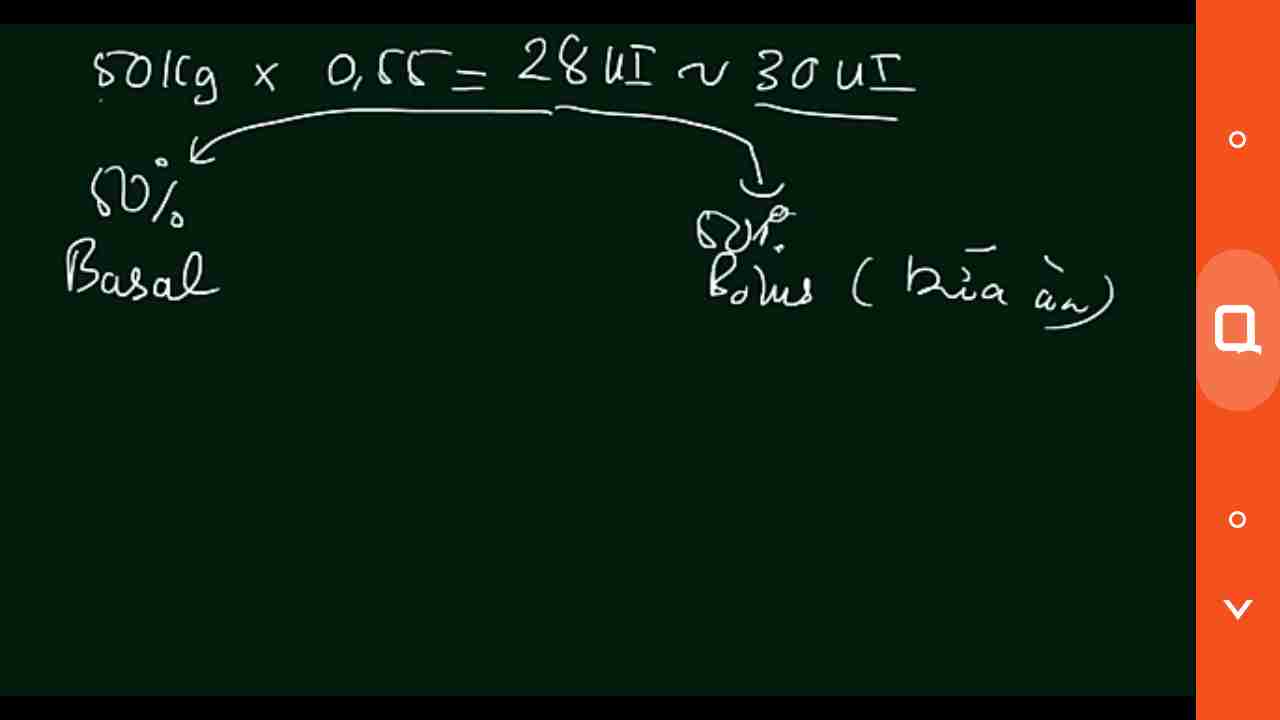 50Kg x 0,55 = 28 UI ~ 30 UI
50% 50%
Basal Bolus (bữa ăn)